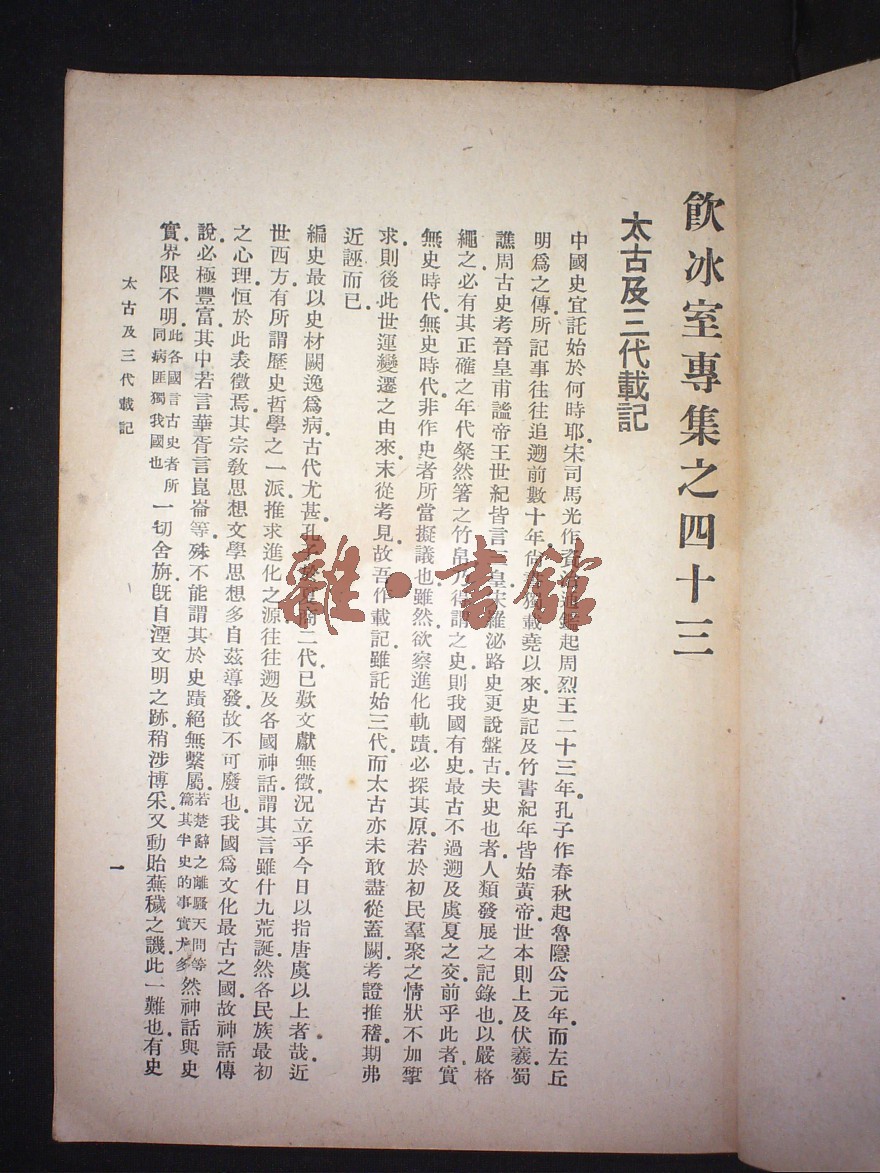 飲冰室專集之四十三
太古及三代載記
中國史宜託始於何時耶宋司馬光作資治通鑑起周烈王二十三年孔子作春秋起魯隱公元年而左丘
明爲之傳所記事往往追溯前數十年尙書獨載堯以來史記及竹書紀年皆始黃帝世本則上及伏羲蜀
譙周古史考晉皇甫謐帝王世紀皆言皇宋羅泌路史更說盤古夫史也者人類發展之記錄也以嚴格
繩之必有其正確之年代粲然箸之竹帛乃得謂之史則我國有史最古不過遡及虞夏之交前乎此者實
無史時代無史時代非作史者所當擬議也雖然欲察進化軌蹟必探其原若於初民羣聚之情狀不加擥
求則後此世運變遷之由來末從考見故吾作載記雖託始三代而太古亦未敢盡從蓋闕考證推稽期弗
近誣而已
編史最以史材闕逸爲病古代尤甚孔於夏商二代已歎文獻無徵況立乎今日以指唐虞以上者哉近
世西方有所謂歷史哲學之一派推求進化之源往往遡及各國神話謂其言雖什九荒誕然各民族最初
之心理恒於此表徵焉其宗敎思想文學思想多自茲導發故不可廢也我國爲文化最古之國故神話傳
說必極豐富其中若言華胥言崑崙等殊不能謂其於史蹟絕無繫屬若楚辭之離騷天問等篇其半史的事實尤多然神話與史
實界限不明此各國言古史者所同病匪獨我國也一切舍旃旣自湮文明之跡稍涉博采又動貽蕪穢之譏此一難也有史
太古及三代載記
一
雜·書館